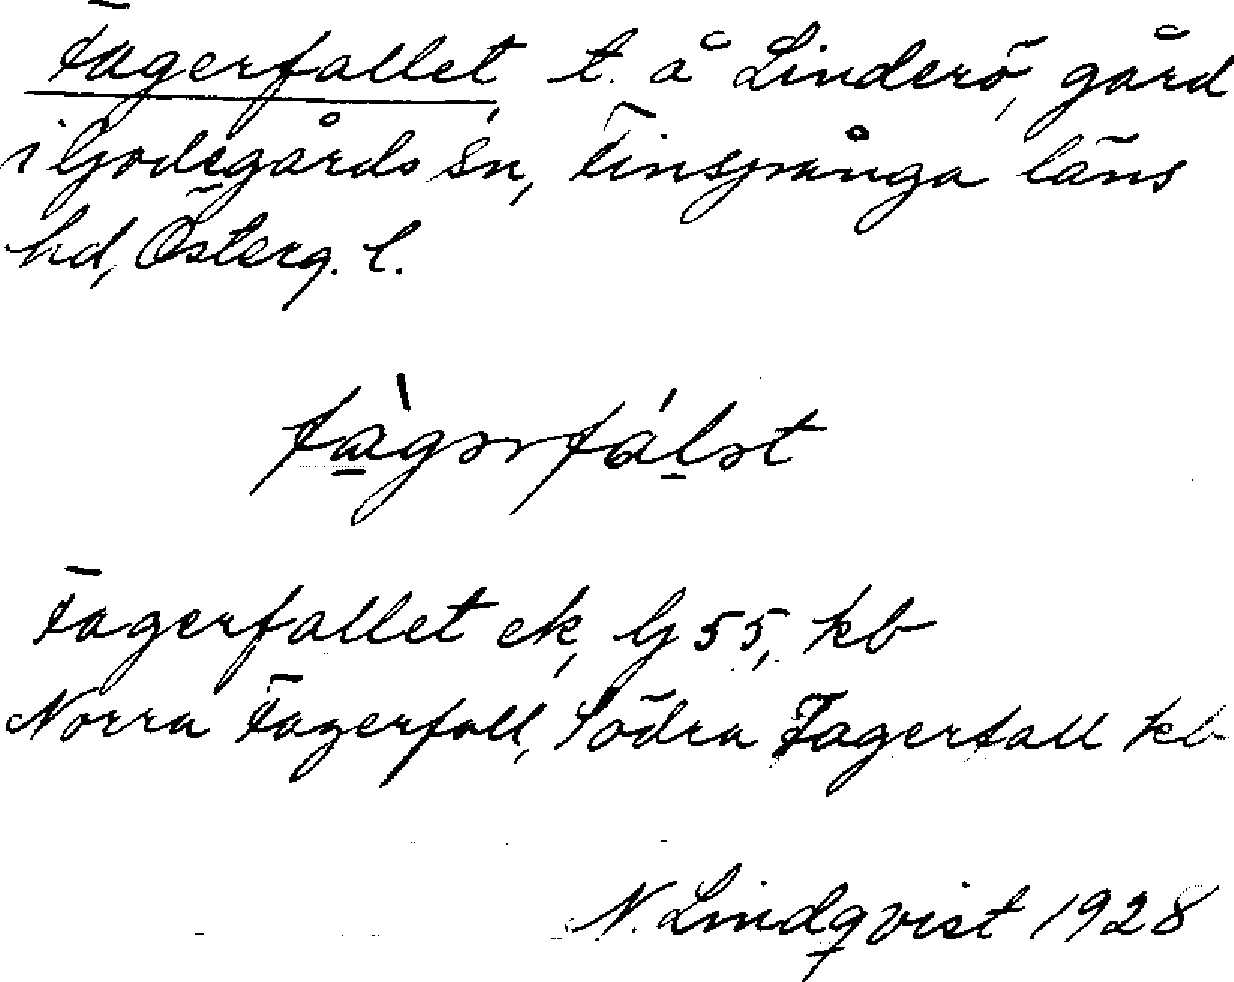 Fagerfallet, t. å Linderö, gård
i Godegårds sn, Finspånga läns
hd, Österg. l.
fàgərfálət
Fagerfallet ek, G 55, kb
Norra Fagerfall, Södra Fagerfall kb
N. Lindqvist 1928